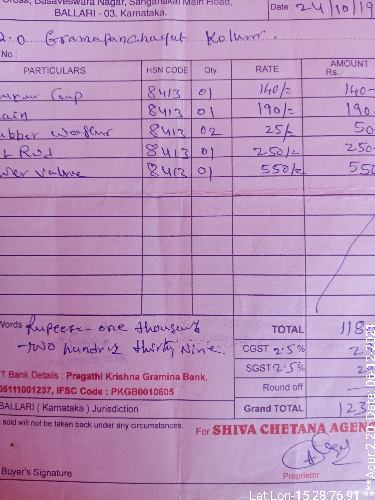 Cross, Basaveswara Nagar, Sanganakal Main Road,
BALLARI - 03. Karnataka.
Date : 24/10/19
Gramapanchayat Kolur
No.:
PARTICULARS HSN CODE Qty. RATE AMOUNT Rs.
Cup 8413 01 140/- 140-
8413 01 190/- 190
8413 02 25/- 50
Rod 8413 01 250/- 250-
8413 01 550/- 550
Words Rupees - one thousand TOTAL 118
-Two hundred thirty Nine CGST 2.5% 2
SGST 2.5% 2
T Bank Details : Pragathi Krishna Gramina Bank.
05111001237, IFSC Code : PKGB0010605 Round off
BALLARI ( Karnataka ) Jurisdiction Grand TOTAL 123
sold will not be taken back under any circumstances.
For SHIVA CHETANA AGEN
Proprietor
Buyer's Signature
Date 06-12-2021
Lat:Lon-15.28:76.91